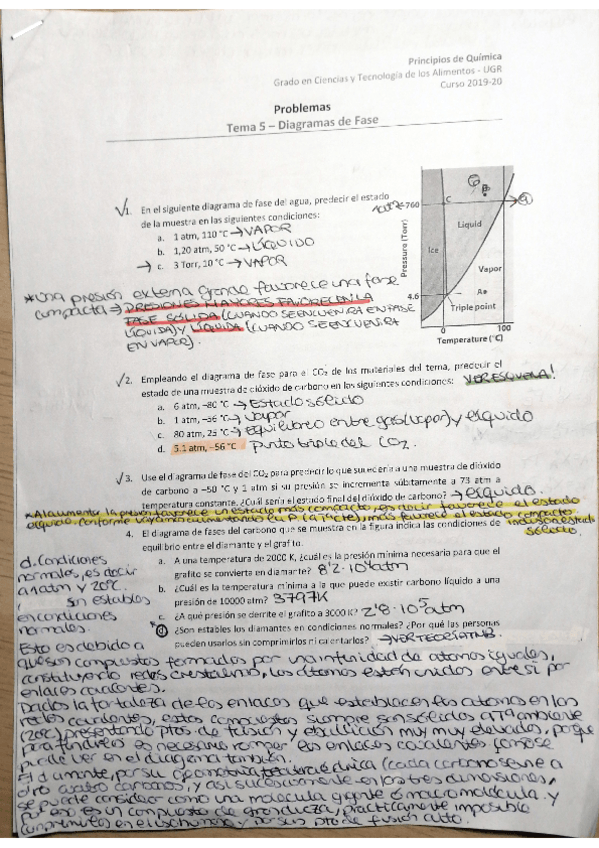 Principios de Química
Grado en Ciencias y Tecnología de los Alimentos - UGR
Curso 2019-20
Problemas
Tema 5 – Diagramas de Fase
1. En el siguiente diagrama de fase del agua, predecir el estado
de la muestra en las siguientes condiciones:
a. 1 atm, 110 °C → VAPOR
b. 1,20 atm, 50 °C → LÍQUIDO
→ c. 3 Torr, 10 °C → VAPOR
760
C
Liquid
Pressure (Torr)
Ice
Vapor
4.6
A
Triple point
0
100
Temperature (°C)
*Una presión externa grande favorece una fase
compacta → PRESIONES MAYORES FAVORECEN LA
FASE SÓLIDA (CUANDO SE ENCUENTRA EN FASE
LÍQUIDA) Y LÍQUIDA (CUANDO SE ENCUENTRA
EN VAPOR).
2. Empleando el diagrama de fase para el CO2 de los materiales del tema, predecir el
estado de una muestra de dióxido de carbono en las siguientes condiciones: VER ESQUEMA!
a. 6 atm, –80 °C → Estado sólido
b. 1 atm, –56 °C → Vapor
c. 80 atm, 25 °C → Equilibrio entre gas (vapor) y líquido
d. 5.1 atm, –56 °C Punto triple del CO2.
3. Use el diagrama de fase del CO2 para predecir lo que sucedería a una muestra de dióxido
de carbono a –50 °C y 1 atm si su presión se incrementa súbitamente a 73 atm a
temperatura constante. ¿Cuál sería el estado final del dióxido de carbono? → líquido.
*Al aumentar la presión favorece un estado más compacto, es decir favorece al estado
líquido. Conforme vayamos aumentando la P (a Tª cte), más favorece al estado compacto
inclusive estado
sólido.
4. El diagrama de fases del carbono que se muestra en la figura indica las condiciones de
equilibrio entre el diamante y el grafito.
a. A una temperatura de 2000 K, ¿cuál es la presión mínima necesaria para que el
grafito se convierta en diamante? 8'2·10⁴atm
b. ¿Cuál es la temperatura mínima a la que puede existir carbono líquido a una
presión de 10000 atm? 3797K
c. ¿A qué presión se derrite el grafito a 3000 K? 2'8·10⁵atm
d. ¿Son estables los diamantes en condiciones normales? ¿Por qué las personas
pueden usarlos sin comprimirlos ni calentarlos? → VER TEORÍA
d. Condiciones
normales, es decir
a 1 atm y 20ºC.
Son estables
en condiciones
normales.
Esto es debido a
que son compuestos formados por una infinidad de átomos iguales,
constituyendo redes cristalinas, los átomos están unidos entre sí por
enlaces covalentes.
Dados la fortaleza de los enlaces que establecen los átomos en las
redes covalentes, estos compuestos siempre son sólidos a Tª ambiente
(20ºC) presentando ptos de fusión y ebullición muy muy elevados, porque
para fundirlos es necesario romper los enlaces covalentes
puede ver en el diagrama también.
El diamante, por su geometría tetraédrica (cada carbono se une a
otro cuatro carbonos, y así sucesivamente en las tres dimensiones,
se puede considerar como una molécula gigante o macromolécula. Y
por eso es un compuesto de gran dureza, prácticamente imposible
y por su pto de fusión alto.